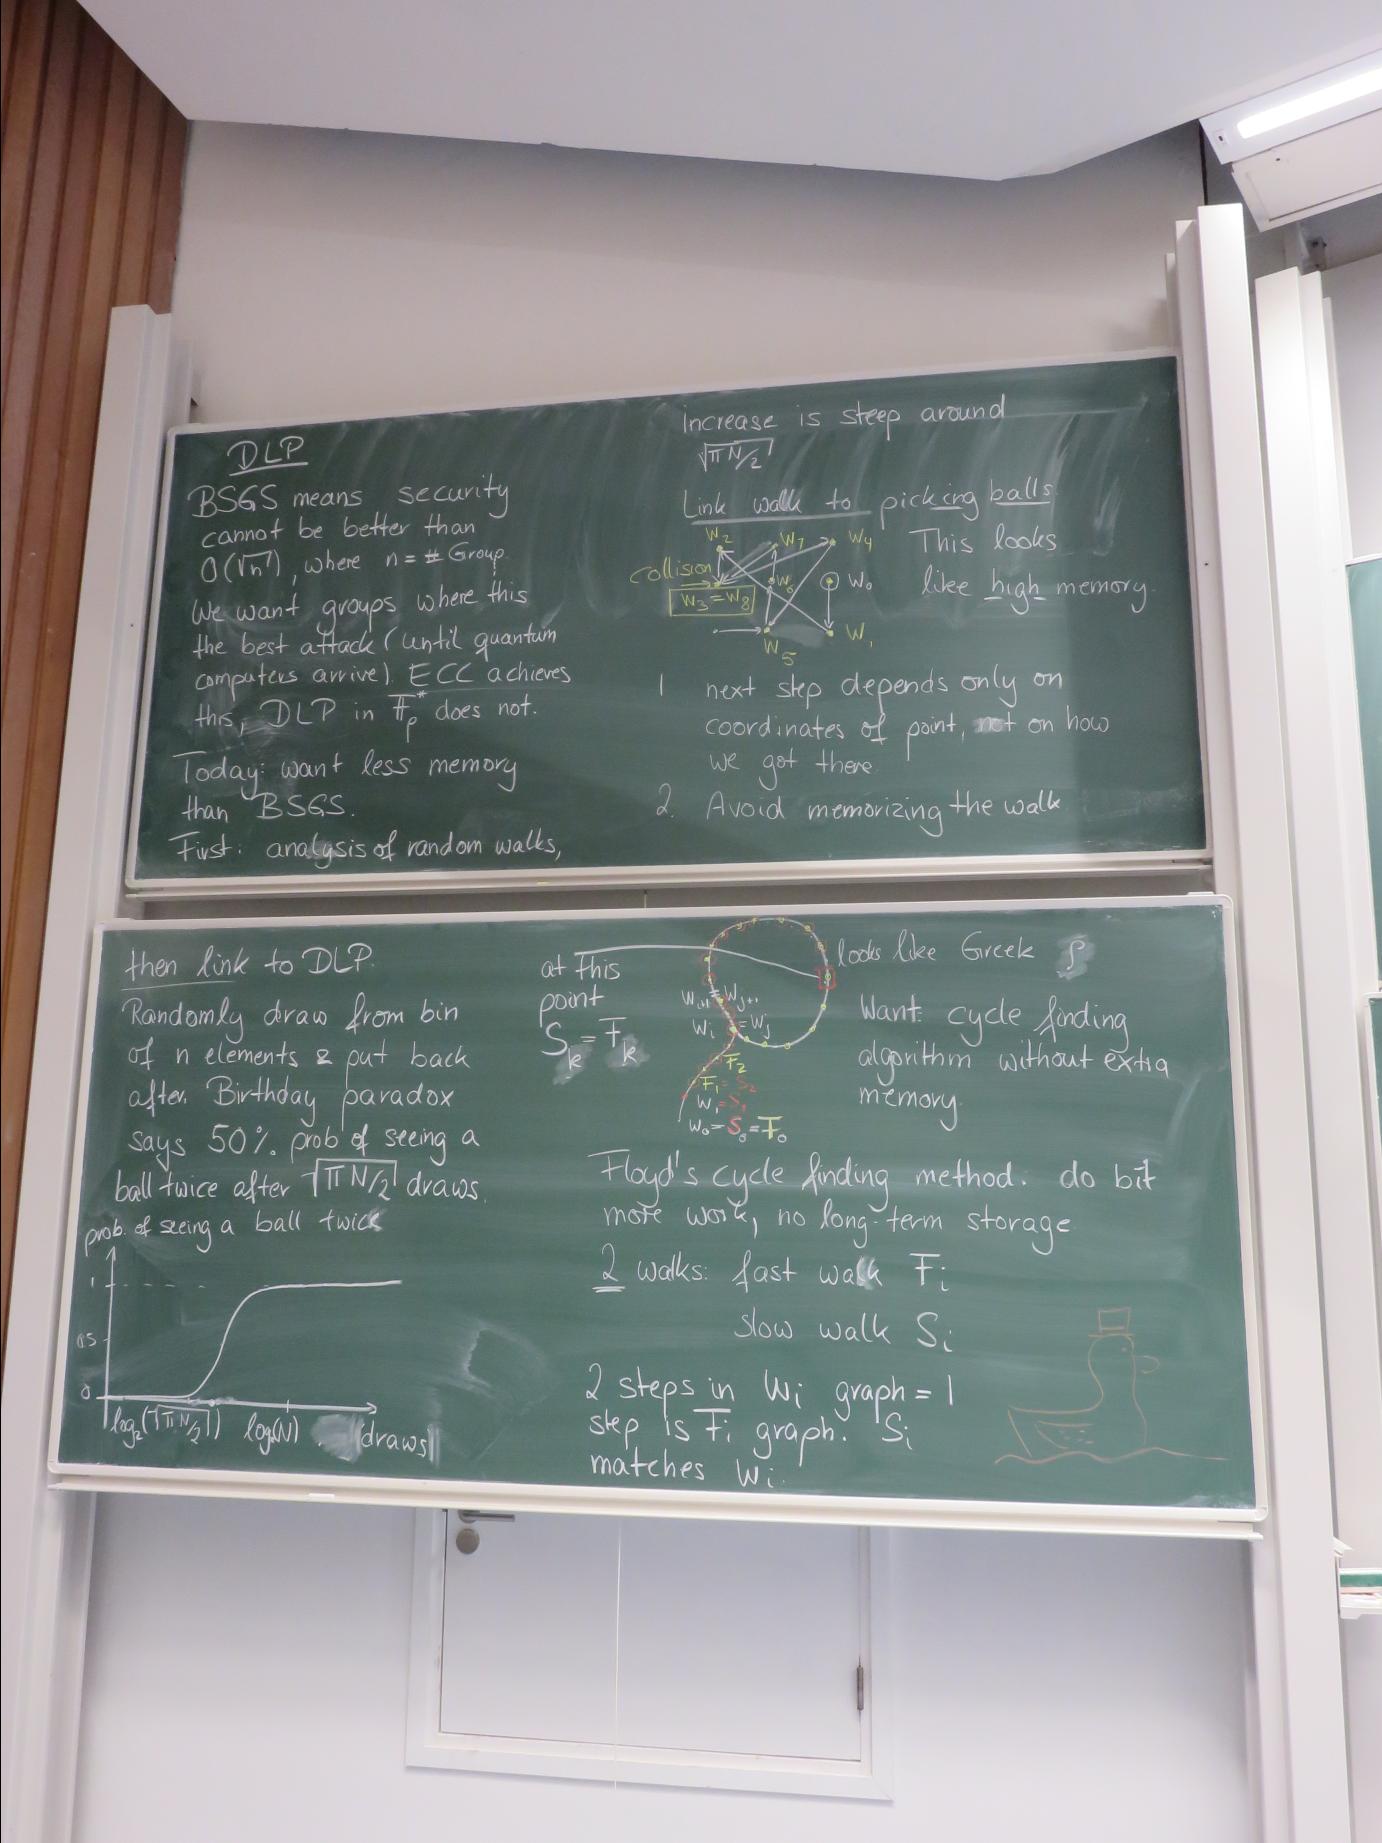 DLP
BSGS means security
cannot be better than
O(√n), where n = # Group.
We want groups where this
the best attack (until quantum
computers arrive). ECC achieves
this, DLP in F_p^* does not.
Today: want less memory
than BSGS.
First: analysis of random walks,
Increase is steep around
√πN/2
Link walk to picking balls
W2 W7 W4 This looks
Collision W6 W0 like high memory.
W3 = W8
W5 W1
1 next step depends only on
coordinates of point, not on how
we got there
2. Avoid memorizing the walk
then link to DLP.
Randomly draw from bin
of n elements & put back
after. Birthday paradox
says 50% prob of seeing a
ball twice after √πN/2 draws.
prob. of seeing a ball twice
1
0.5
0
log2(√πN/2) log(N) draws
at this
point
S_k = F_k
looks like Greek ρ
W_i+1 = W_j+1
W_i = W_j
F2
F1 = S2
W1 = S1
W0 = S0 = F0
Want: cycle finding
algorithm without extra
memory.
Floyd's cycle finding method: do bit
more work, no long-term storage
2 walks: fast walk F_i
slow walk S_i
2 steps in W_i graph = 1
step is F_i graph. S_i
matches W_i.